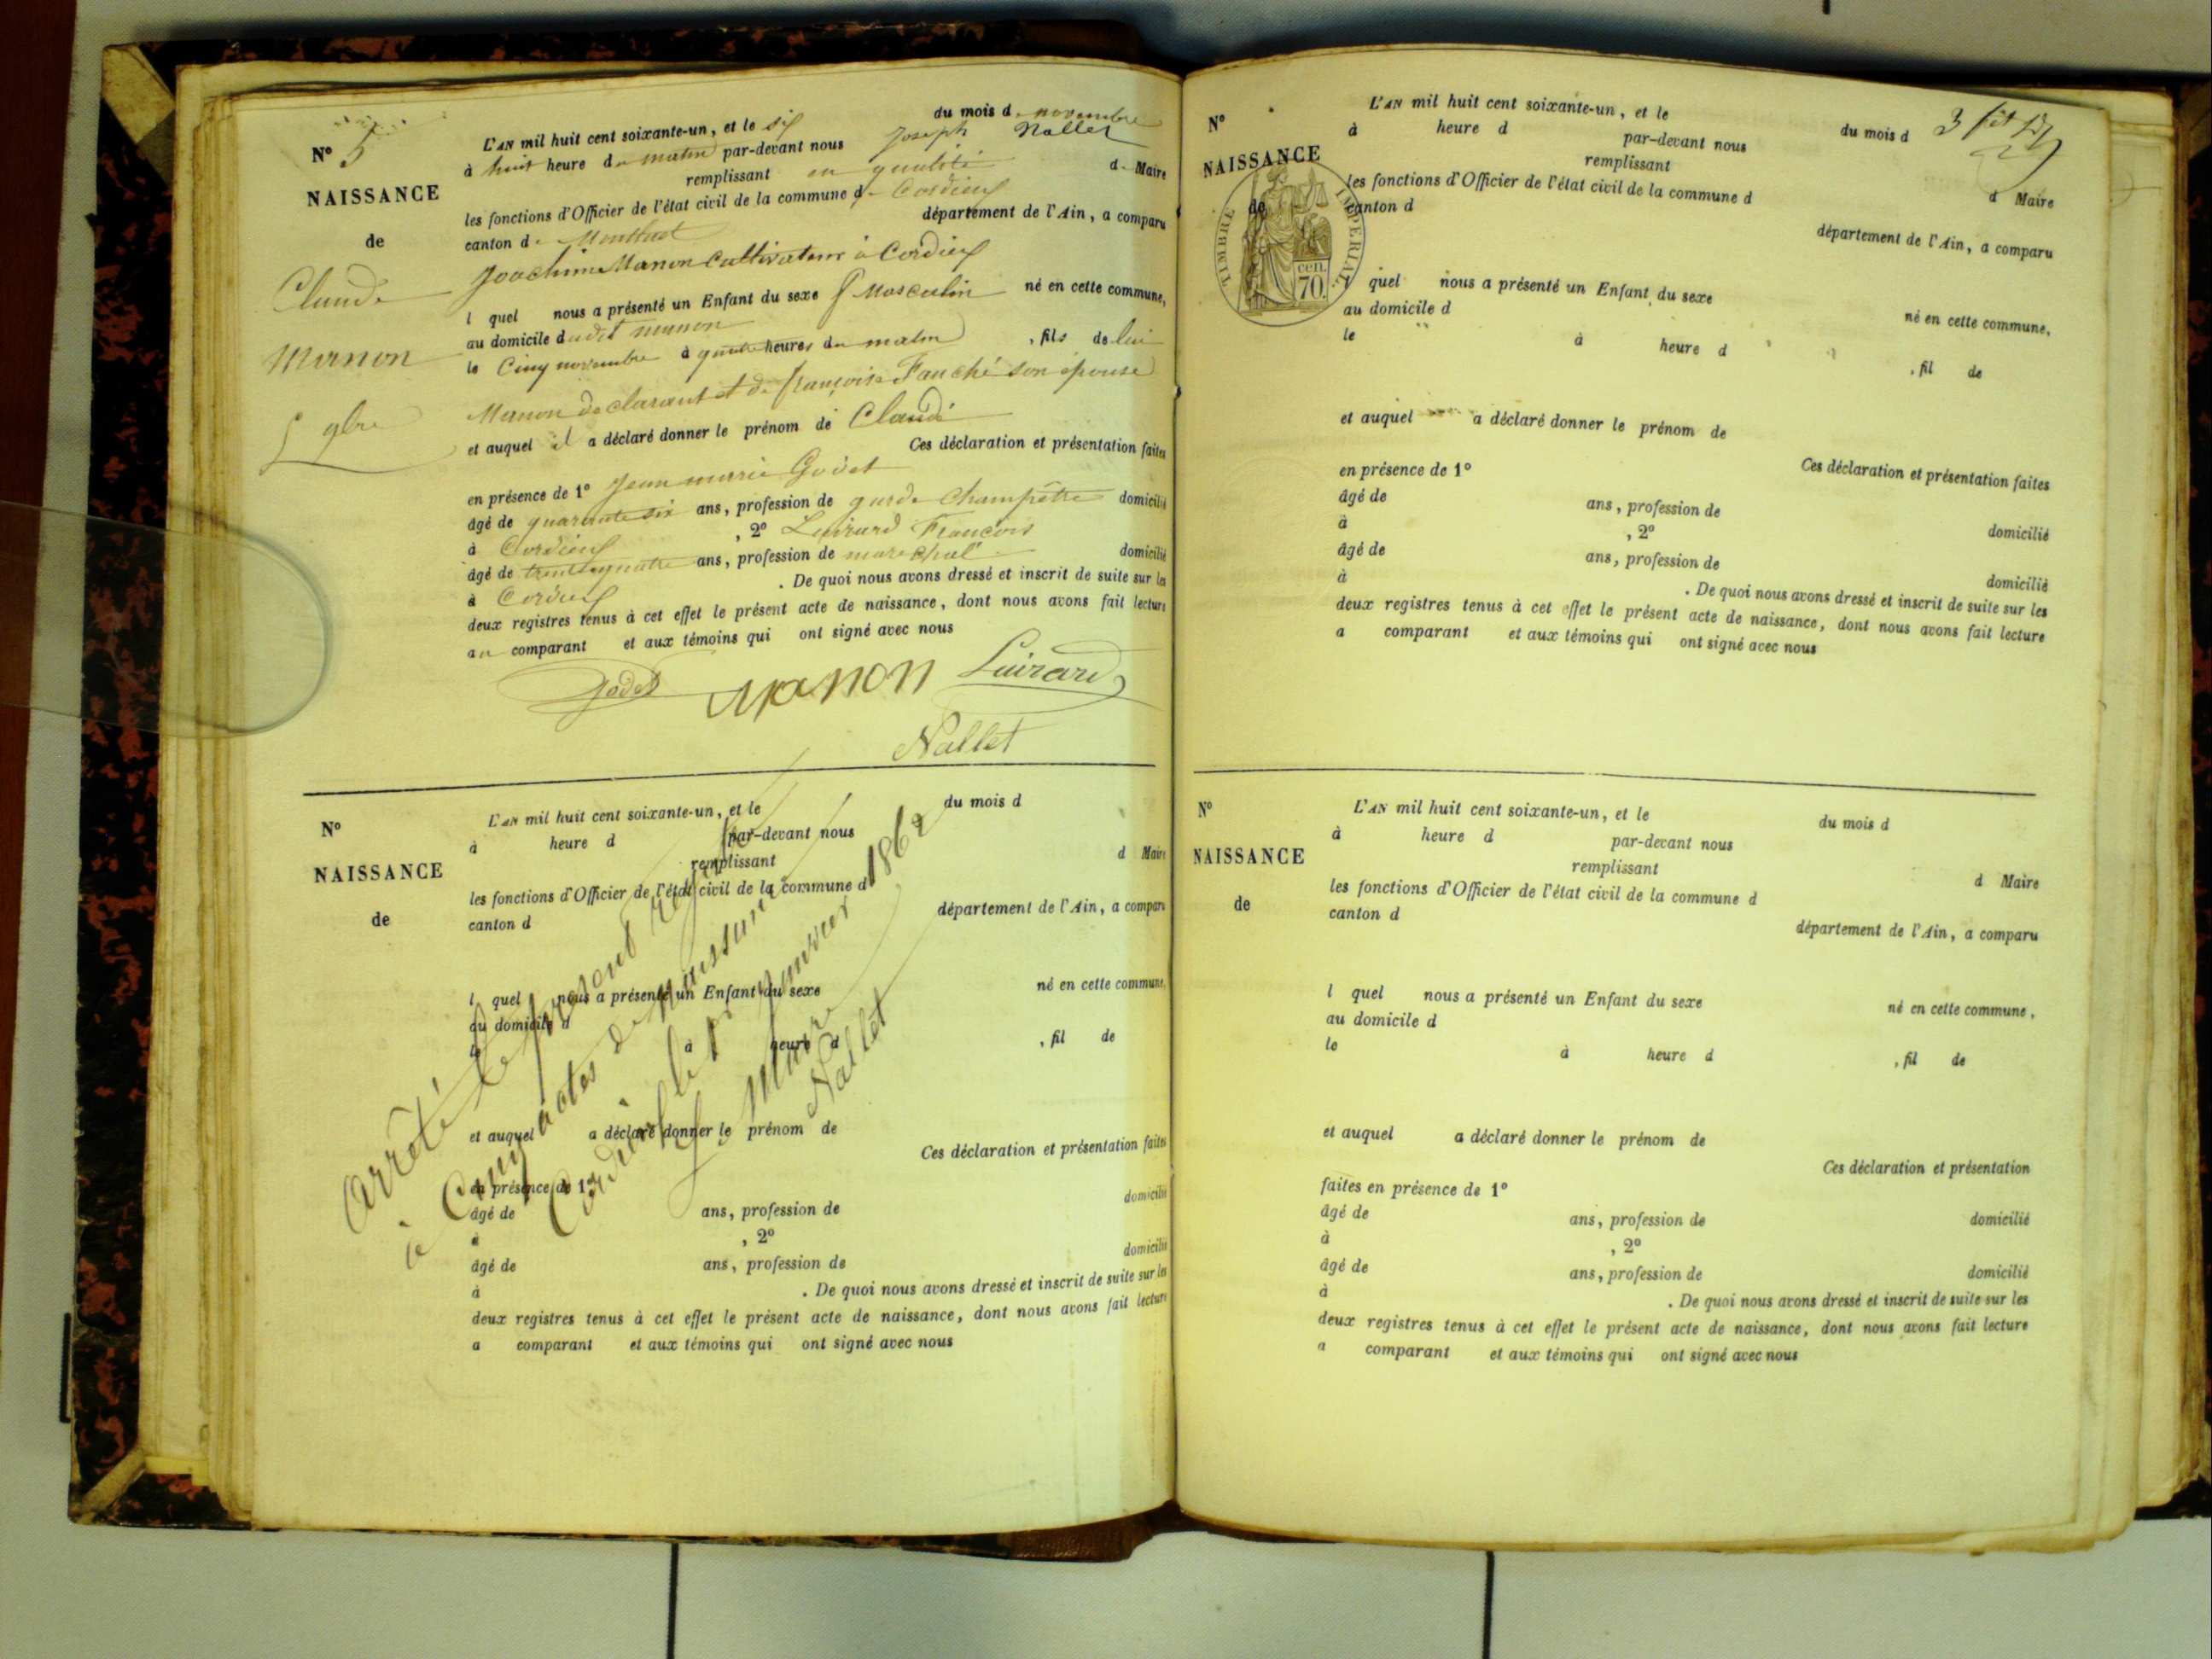 N° 5
NAISSANCE
de
Claude
Manon
L'AN mil huit cent soixante-un, et le six du mois de novembre
à huit heure du matin par-devant nous Joseph Nallet
remplissant en qualité de Maire
les fonctions d'Officier de l'état civil de la commune de Cordieux
canton de Montluel département de l'Ain, a comparu
Joachim Manon Cultivateur à Cordieux
l quel nous a présenté un Enfant du sexe Masculin né en cette commune,
au domicile dudit manon
le Cinq novembre à quatre heures du matin, fils de lui
Manon déclarant et de françoise Fauché son épouse
et auquel il a déclaré donner le prénom de Claude
Ces déclaration et présentation faites
en présence de 1° Jean marie Godet
âgé de quarante six ans, profession de garde Champêtre domicilié
à Cordieux, 2° Luirard François
âgé de trente quatre ans, profession de maréchal domicilié
à Cordieux. De quoi nous avons dressé et inscrit de suite sur les
deux registres tenus à cet effet le présent acte de naissance, dont nous avons fait lecture
au comparant et aux témoins qui ont signé avec nous
Godet Manon Luirard
Nallet
N°
NAISSANCE
de
L'AN mil huit cent soixante-un, et le du mois d
à heure d par-devant nous
remplissant d Maire
les fonctions d'Officier de l'état civil de la commune d
canton d département de l'Ain, a comparu
l quel nous a présenté un Enfant du sexe né en cette commune,
au domicile d
le à heure d , fil de
et auquel a déclaré donner le prénom de
Ces déclaration et présentation faites
en présence de 1°
âgé de ans, profession de domicilié
à , 2°
âgé de ans, profession de domicilié
à . De quoi nous avons dressé et inscrit de suite sur les
deux registres tenus à cet effet le présent acte de naissance, dont nous avons fait lecture
a comparant et aux témoins qui ont signé avec nous
Arrêté le présent registre
à Cinq actes de naissance
Cordieux le 1er janvier 1862
Le Maire
Nallet
N°
NAISSANCE
de
TIMBRE IMPERIAL
70 cen.
L'AN mil huit cent soixante-un, et le du mois d
à heure d par-devant nous
remplissant d Maire
les fonctions d'Officier de l'état civil de la commune d
canton d département de l'Ain, a comparu
l quel nous a présenté un Enfant du sexe né en cette commune,
au domicile d
le à heure d , fil de
et auquel a déclaré donner le prénom de
Ces déclaration et présentation faites
en présence de 1°
âgé de ans, profession de domicilié
à , 2°
âgé de ans, profession de domicilié
à . De quoi nous avons dressé et inscrit de suite sur les
deux registres tenus à cet effet le présent acte de naissance, dont nous avons fait lecture
a comparant et aux témoins qui ont signé avec nous
N°
NAISSANCE
de
L'AN mil huit cent soixante-un, et le du mois d
à heure d par-devant nous
remplissant d Maire
les fonctions d'Officier de l'état civil de la commune d
canton d département de l'Ain, a comparu
l quel nous a présenté un Enfant du sexe né en cette commune,
au domicile d
le à heure d , fil de
et auquel a déclaré donner le prénom de
Ces déclaration et présentation
faites en présence de 1°
âgé de ans, profession de domicilié
à , 2°
âgé de ans, profession de domicilié
à . De quoi nous avons dressé et inscrit de suite sur les
deux registres tenus à cet effet le présent acte de naissance, dont nous avons fait lecture
a comparant et aux témoins qui ont signé avec nous